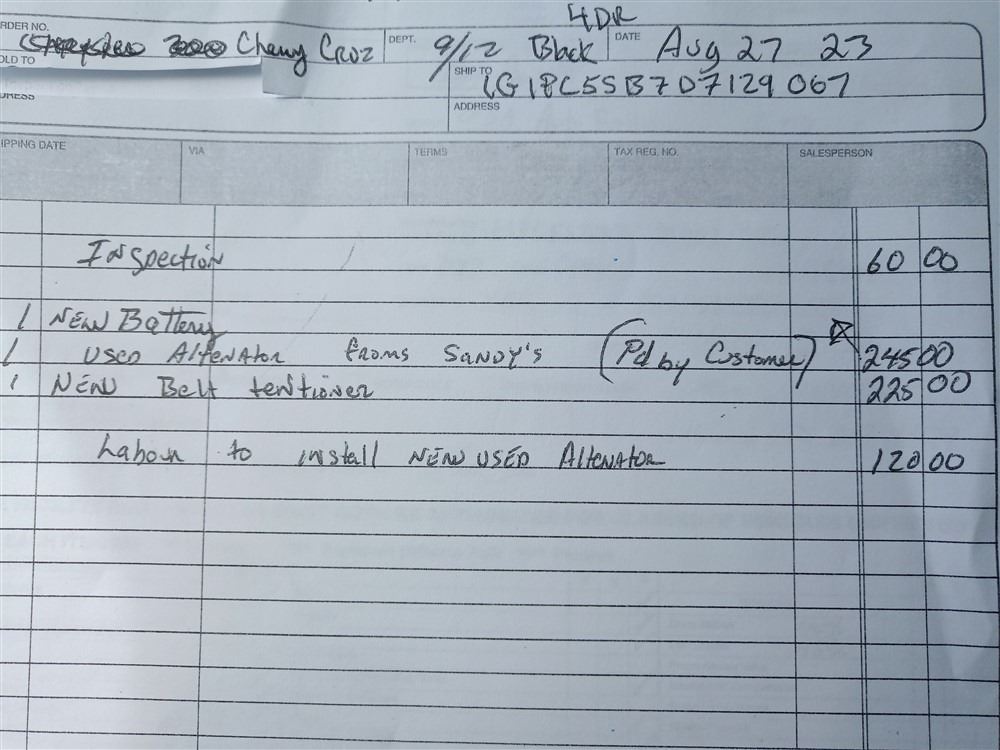 4DR
RDER NO. Chevy Cruz DEPT. 9/12 Black DATE Aug 27 23
OLD TO SHIP TO 1G1PC5SB7D7129067
DRESS ADDRESS
IPPING DATE VIA TERMS TAX REG. NO. SALESPERSON
Inspection 60 00
1 New Battery
1 used Altenator froms Sandy's (Pd by Customer) 245 00
1 New Belt tentioner 225 00
Labour to install NEW USED Altenator 120 00